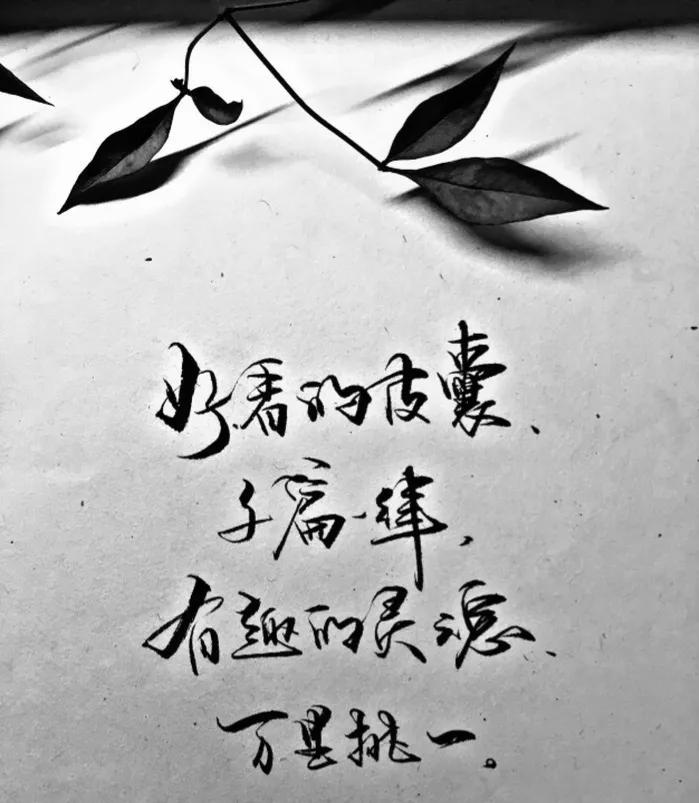 好看的皮囊、
千篇一律，
有趣的灵魂、
万里挑一。